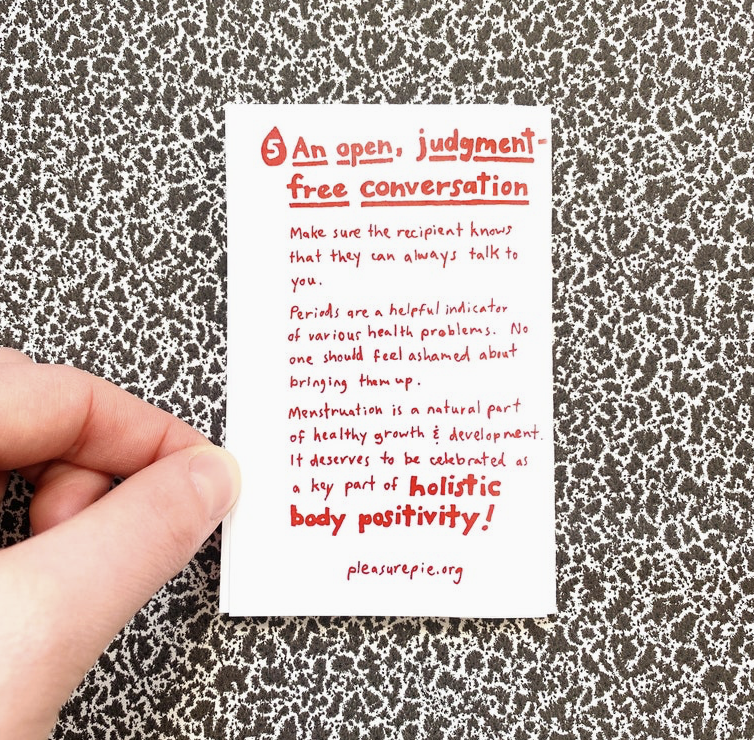 5 An open, judgment-
free conversation
Make sure the recipient knows
that they can always talk to
you.
Periods are a helpful indicator
of various health problems. No
one should feel ashamed about
bringing them up.
Menstruation is a natural part
of healthy growth & development.
It deserves to be celebrated as
a key part of holistic
body positivity!
pleasurepie.org